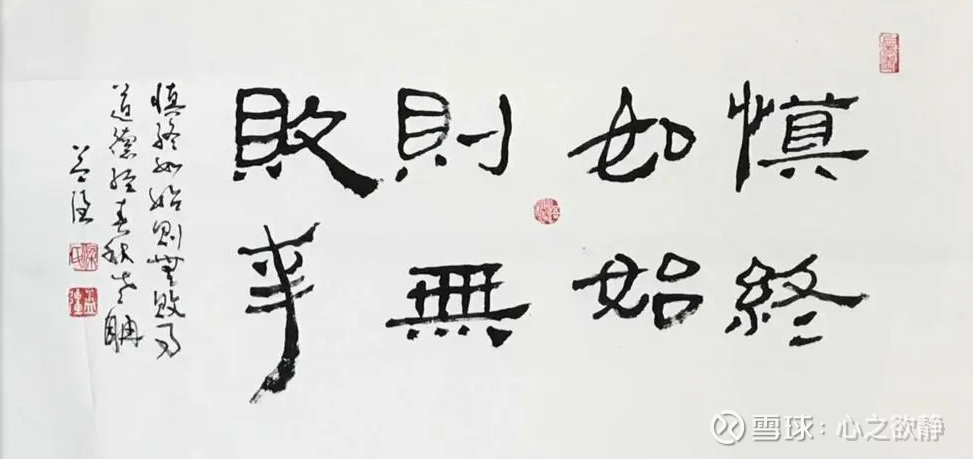 慎終
如始
則無
敗事
慎終如始則無敗事
道德經春秋老聃
雪球：心之欲静